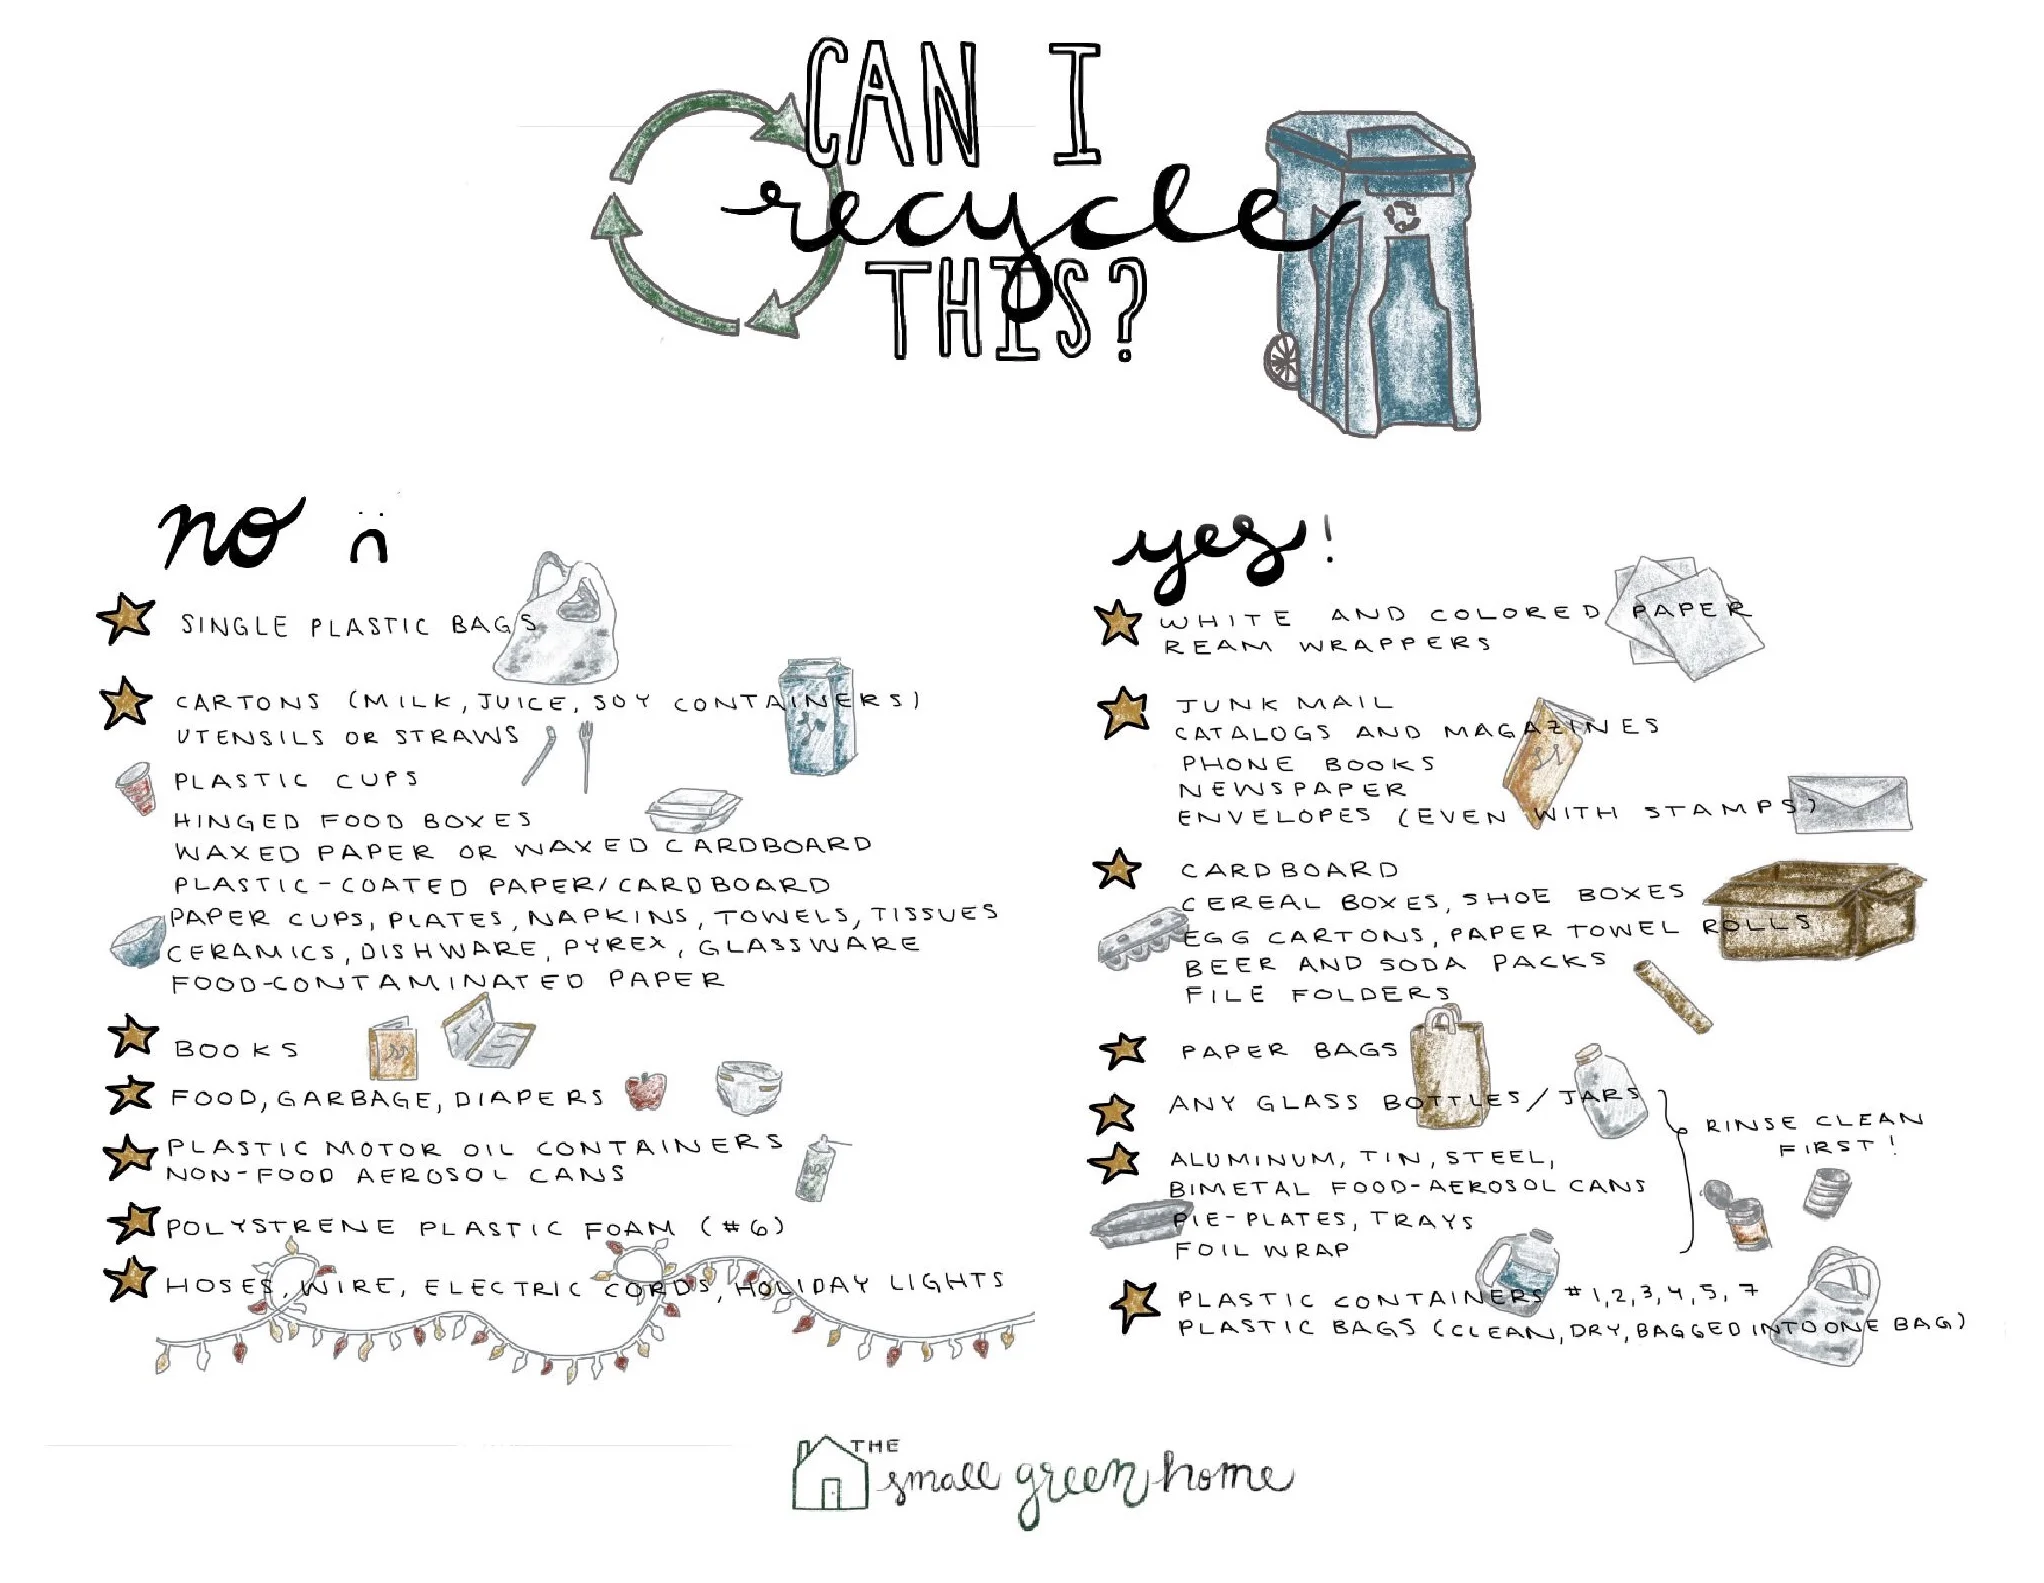 CAN I
recycle
THIS?
no
SINGLE PLASTIC BAGS
CARTONS (MILK, JUICE, SOY CONTAINERS)
UTENSILS OR STRAWS
PLASTIC CUPS
HINGED FOOD BOXES
WAXED PAPER OR WAXED CARDBOARD
PLASTIC-COATED PAPER/CARDBOARD
PAPER CUPS, PLATES, NAPKINS, TOWELS, TISSUES
CERAMICS, DISHWARE, PYREX, GLASSWARE
FOOD-CONTAMINATED PAPER
BOOKS
FOOD, GARBAGE, DIAPERS
PLASTIC MOTOR OIL CONTAINERS
NON-FOOD AEROSOL CANS
POLYSTRENE PLASTIC FOAM (#6)
HOSES, WIRE, ELECTRIC CORDS, HOLIDAY LIGHTS
yes!
WHITE AND COLORED PAPER
REAM WRAPPERS
JUNK MAIL
CATALOGS AND MAGAZINES
PHONE BOOKS
NEWSPAPER
ENVELOPES (EVEN WITH STAMPS)
CARDBOARD
CEREAL BOXES, SHOE BOXES
EGG CARTONS, PAPER TOWEL ROLLS
BEER AND SODA PACKS
FILE FOLDERS
PAPER BAGS
ANY GLASS BOTTLES/JARS
ALUMINUM, TIN, STEEL,
BIMETAL FOOD-AEROSOL CANS
PIE-PLATES, TRAYS
FOIL WRAP
RINSE CLEAN
FIRST!
PLASTIC CONTAINERS #1,2,3,4,5,7
PLASTIC BAGS (CLEAN, DRY, BAGGED INTO ONE BAG)
THE
small green home